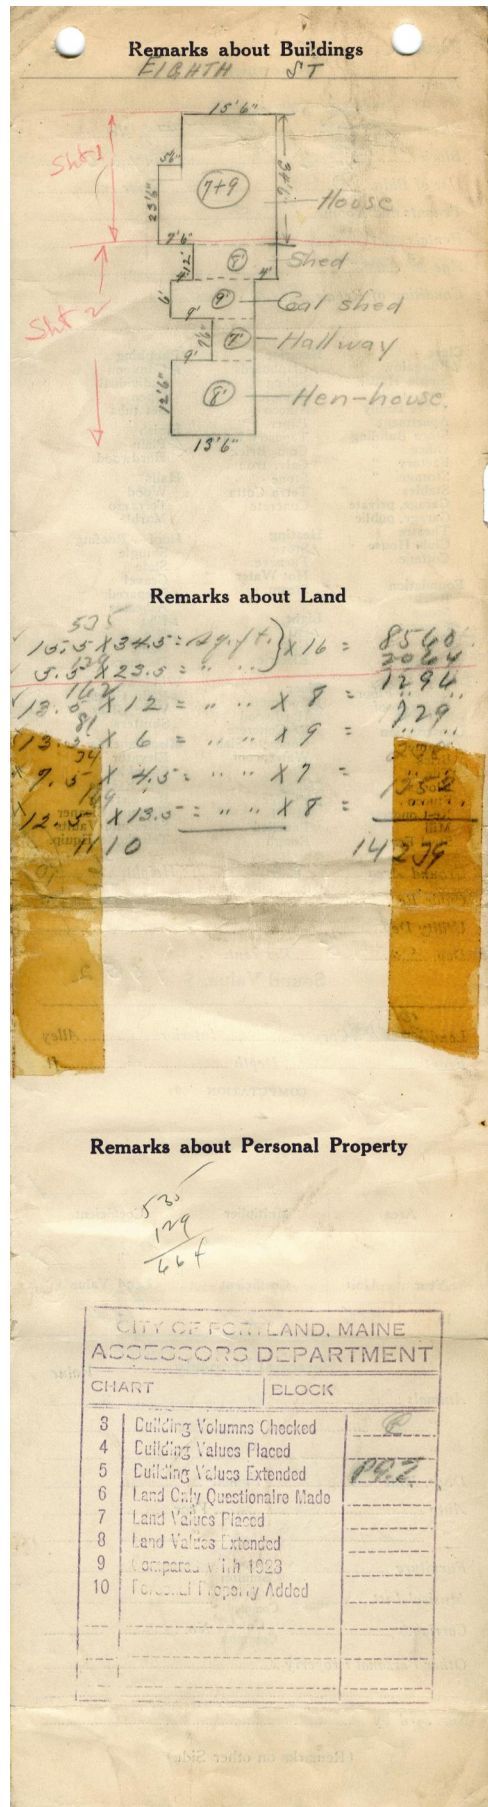 Remarks about Buildings
EIGHTH ST
15'6"
Sht 1
5'6"
7+9
34'6"
23'6"
House
7'6"
12'
8'
Shed
4'
4'
6'
9'
Coal shed
Sht 2
9'
7'6"
7'
Hallway
9'
12'6"
8'
Hen-house
13'6"
Remarks about Land
535
15.5 X 34.5 = sq. ft. } X 16 = 8560
129
5.5 X 23.5 = " " 2064
162
13.5 X 12 = " " X 8 = 1296
81
13.5 X 6 = " " X 9 = 729
34
7.5 X 4.5 = " " X 7 =
169
12.5 X 13.5 = " " X 8 = 1352
1110 14239
Remarks about Personal Property
535
129
664
CITY OF PORTLAND, MAINE
ASSESSORS DEPARTMENT
CHART BLOCK
3 Building Volumns Checked
4 Building Values Placed
5 Building Values Extended
6 Land Only Questionaire Made
7 Land Values Placed
8 Land Values Extended
9 Compared With 1923
10 Personal Property Added